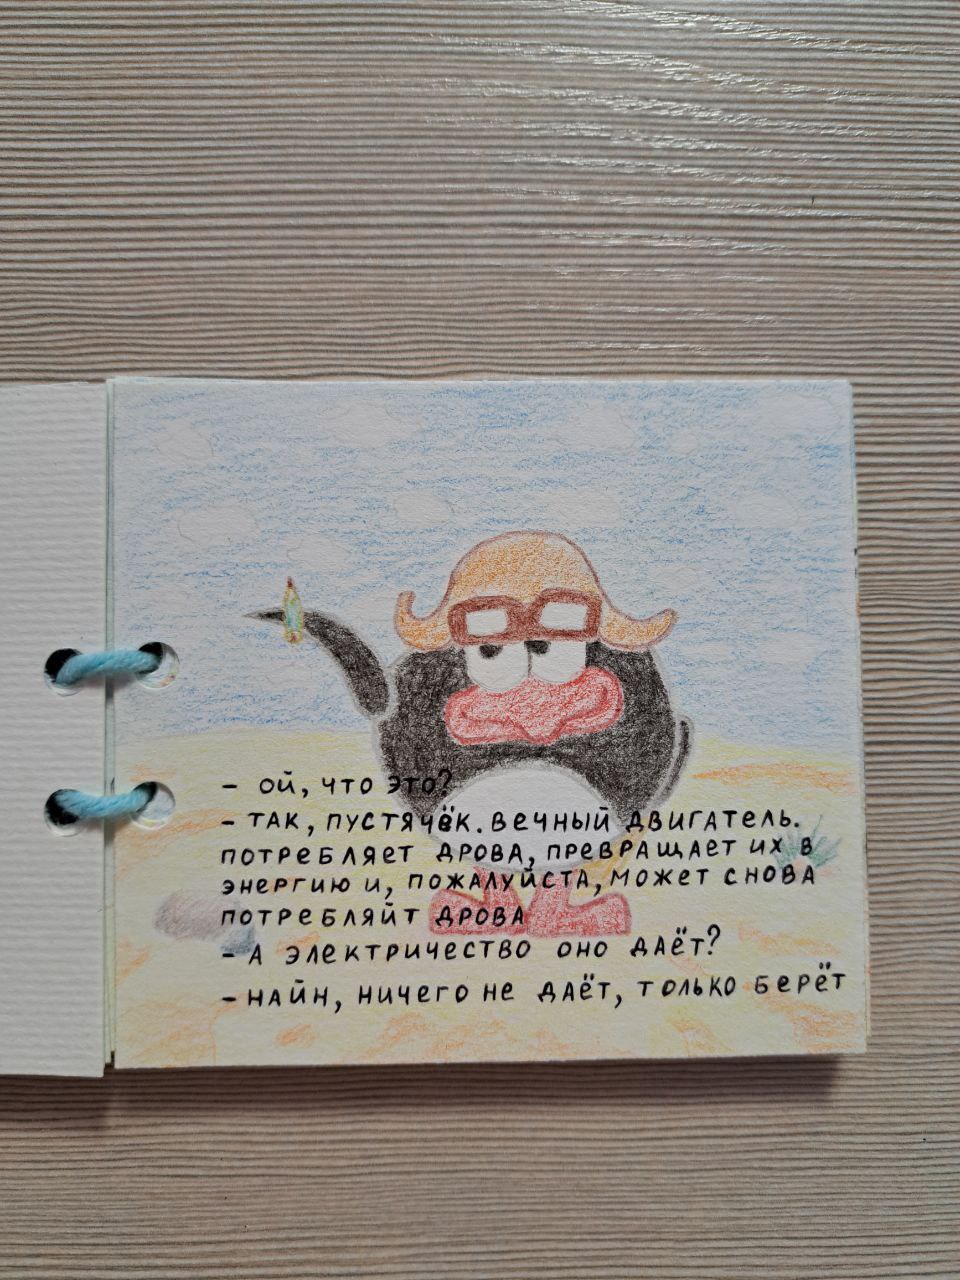 - ОЙ, ЧТО ЭТО?
- ТАК, ПУСТЯЧЁК. ВЕЧНЫЙ ДВИГАТЕЛЬ.
ПОТРЕБЛЯЕТ ДРОВА, ПРЕВРАЩАЕТ ИХ В
ЭНЕРГИЮ И, ПОЖАЛУЙСТА, МОЖЕТ СНОВА
ПОТРЕБЛЯЙТ ДРОВА
- А ЭЛЕКТРИЧЕСТВО ОНО ДАЁТ?
- НАЙН, НИЧЕГО НЕ ДАЁТ, ТОЛЬКО БЕРЁТ